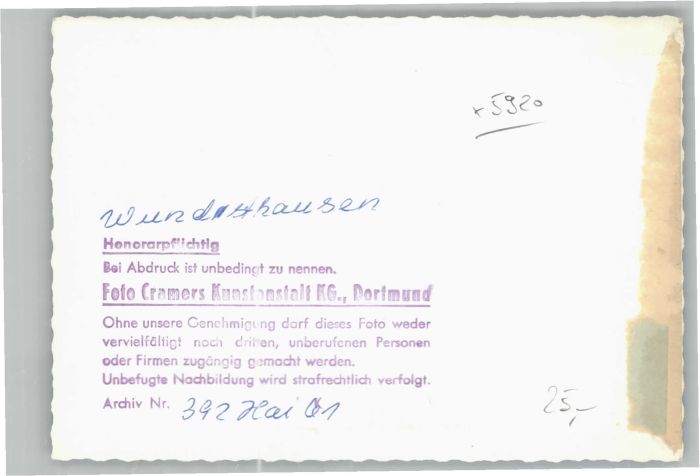 x 5920
Wunderthausen
Honorarpflichtig
Bei Abdruck ist unbedingt zu nennen.
Foto Cramers Kunstanstalt KG., Dortmund
Ohne unsere Genehmigung darf dieses Foto weder
vervielfältigt noch dritten, unberufenen Personen
oder Firmen zugängig gemacht werden.
Unbefugte Nachbildung wird strafrechtlich verfolgt.
Archiv Nr. 392 Hai 61
25,-